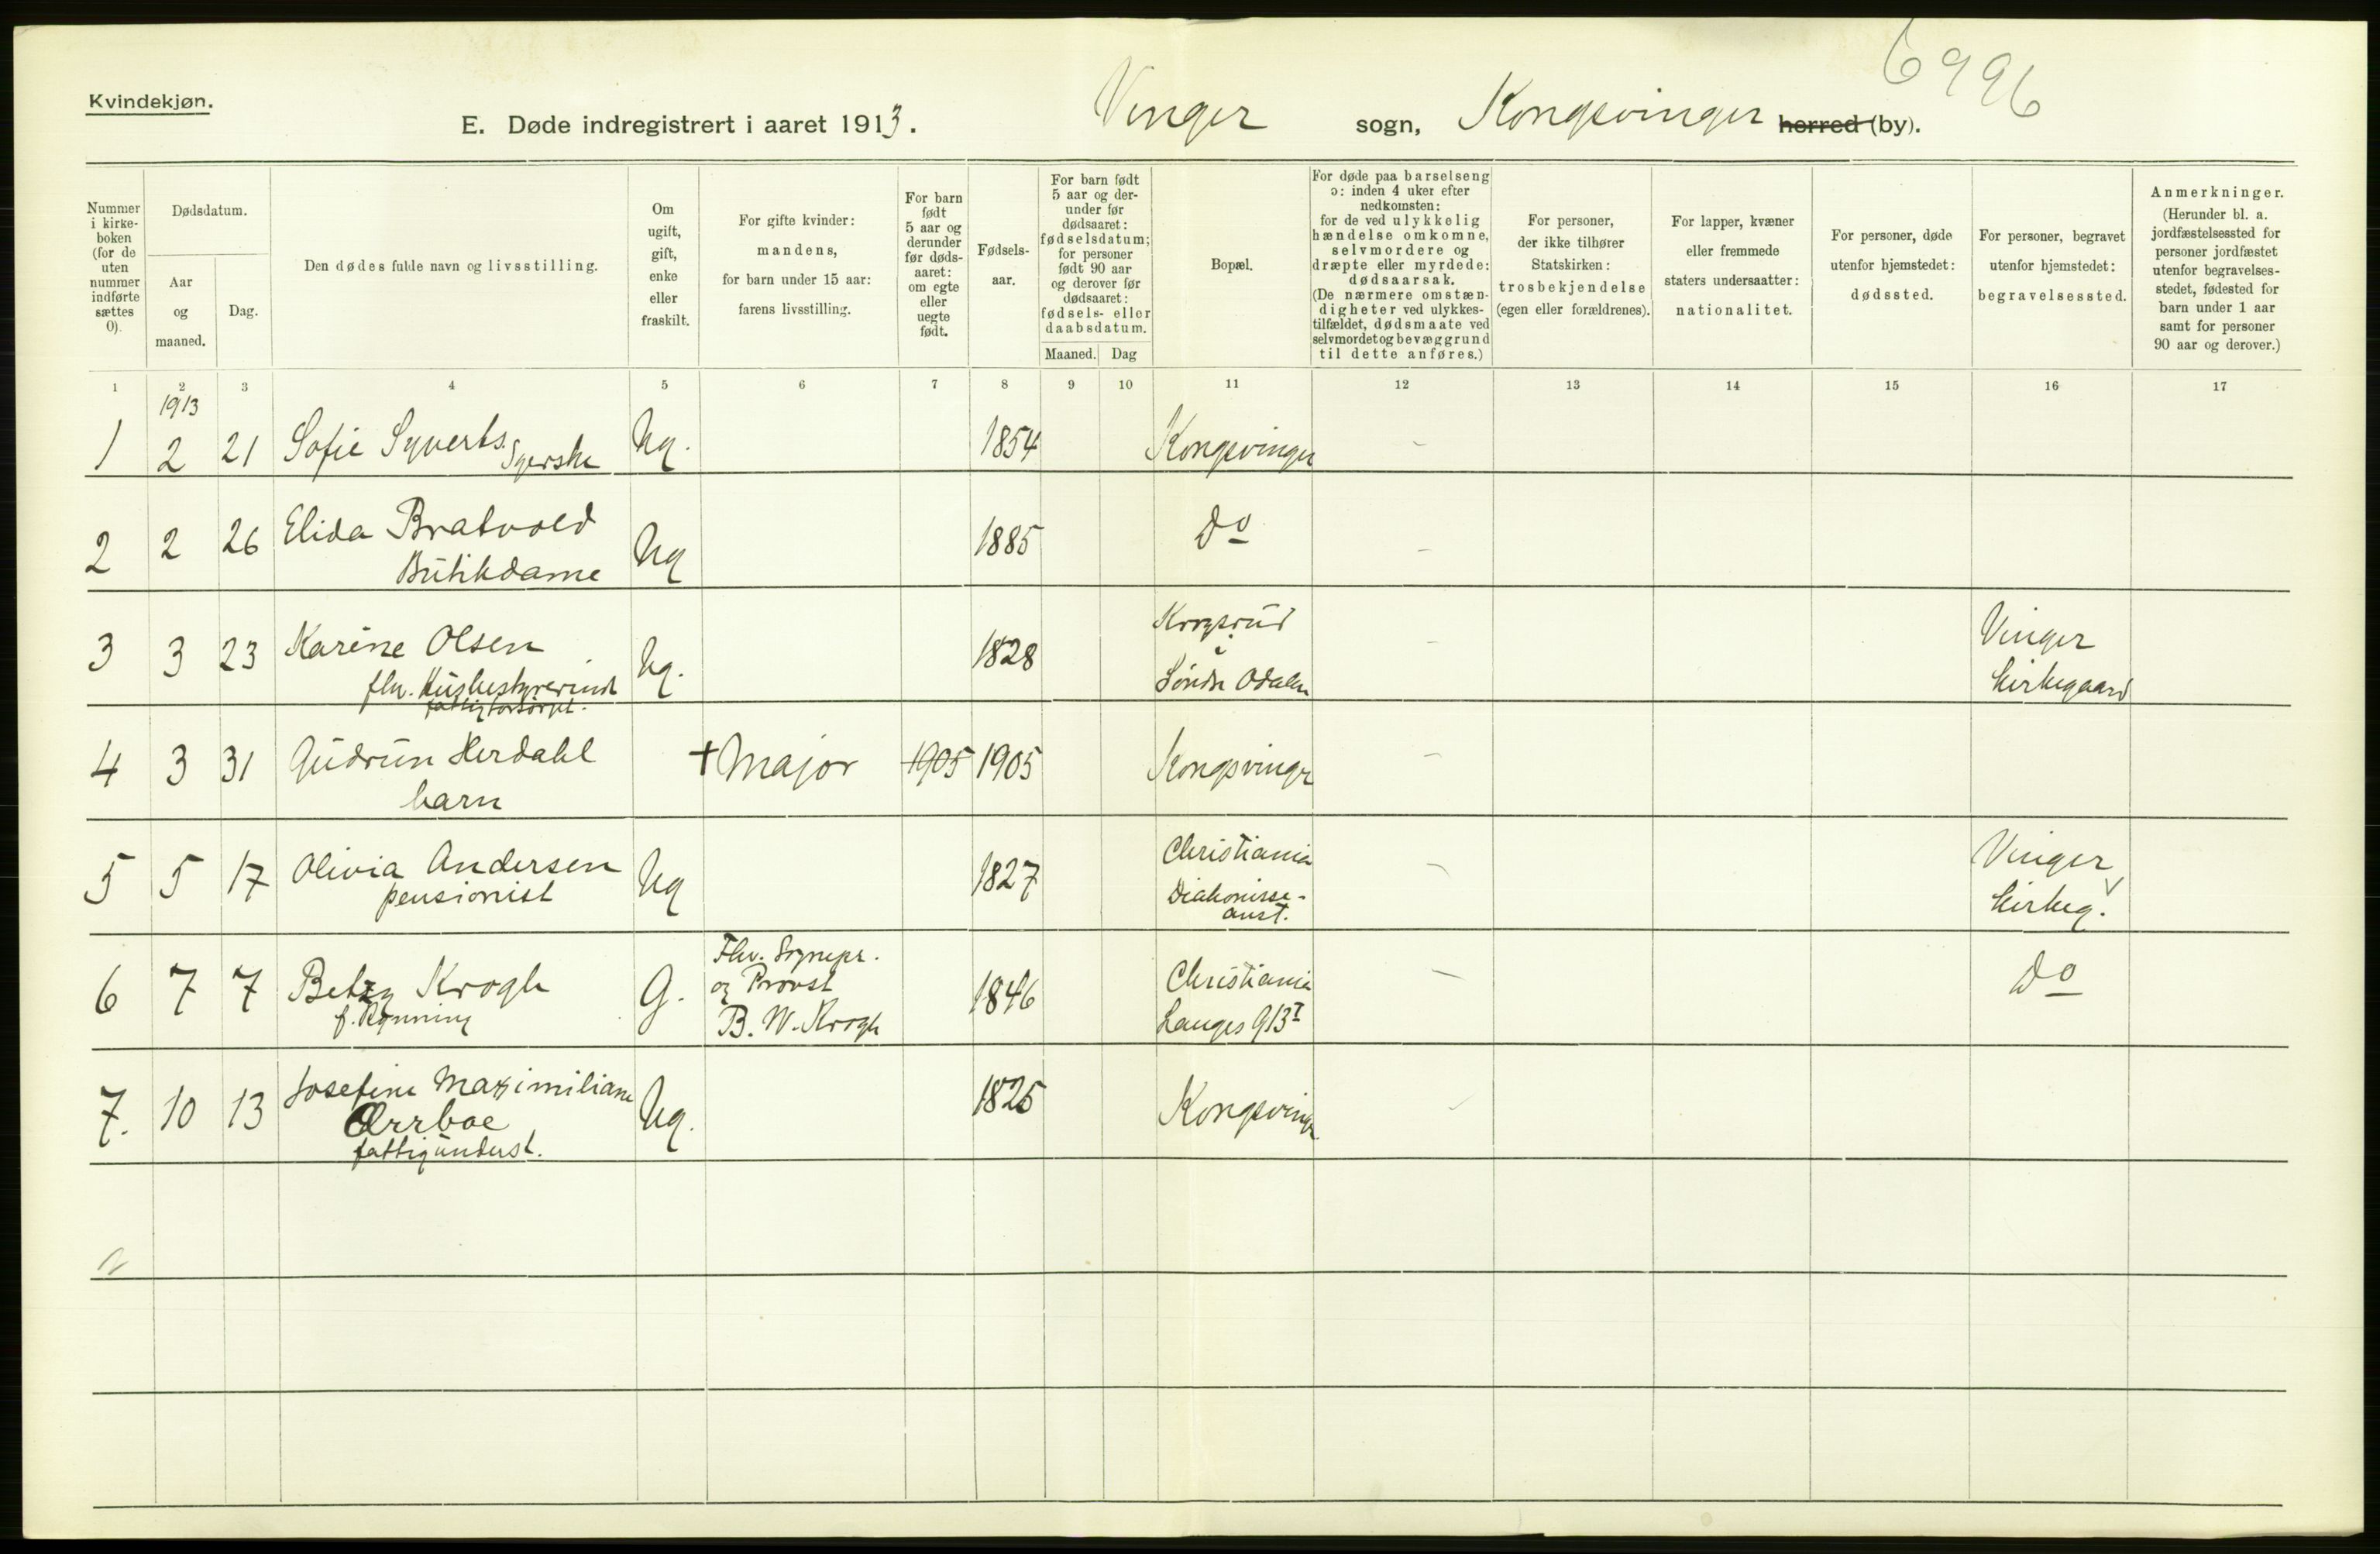 6996
Kvindekjøn.
E. Døde indregistrert i aaret 1913. Vinger sogn, Kongsvinger herred (by).
Nummer i kirke-boken (for de uten nummer indførte sættes 0).
Dødsdatum.
Aar og maaned.
Dag.
Den dødes fulde navn og livsstilling.
Om ugift, gift, enke eller fraskilt.
For gifte kvinder: mandens, for barn under 15 aar: farens livsstilling.
For barn født 5 aar og derunder før døds-aaret: om egte eller uegte født.
Fødsels-aar.
For barn født 5 aar og der-under før dødsaaret: fødselsdatum; for personer født 90 aar og derover før dødsaaret: fødsels- eller daabsdatum.
Maaned. Dag
Bopæl.
For døde paa barselseng ɔ: inden 4 uker efter nedkomsten: for de ved ulykkelig hændelse omkomne, selvmordere og dræpte eller myrdede: dødsaarsak. (De nærmere omstæn-digheter ved ulykkes-tilfældet, dødsmaate ved selvmordet og bevæggrund til dette anføres.)
For personer, der ikke tilhører Statskirken: trosbekjendelse (egen eller forældrenes).
For lapper, kvæner eller fremmede staters undersaatter: nationalitet.
For personer, døde utenfor hjemstedet: dødssted.
For personer, begravet utenfor hjemstedet: begravelsessted.
Anmerkninger. (Herunder bl. a. jordfæstelsessted for personer jordfæstet utenfor begravelses-stedet, fødested for barn under 1 aar samt for personer 90 aar og derover.)
1 2 3 4 5 6 7 8 9 10 11 12 13 14 15 16 17
1913
1 2 21 Sofie Syverts. Syerske Ug. 1854 Kongsvinger -
2 2 26 Elida Bratvold Ug 1885 Do -
Butikdame
3 3 23 Karine Olsen Ug. 1828 Krogsrud i Søndre Odalen - Vinger kirkegaard
flv. Husbestyrerinde
fattigforsørget.
4 3 31 Gudrun Herdahl + Major 1905 1905 Kongsvinger -
barn
5 5 17 Olivia Andersen Ug 1827 Christiania Diakonisse-anst. - Vinger kirkeg.
pensionist
6 7 7 Betzy Krogh G. Flv. Sognepr. og Provst B. W. Krogh 1846 Christiania Langes G 13 I - Do
f. Rynning
7. 10 13 Josefine Maximiliane Ug. 1825 Kongsvinger -
Ørrboe
fattigunderst.